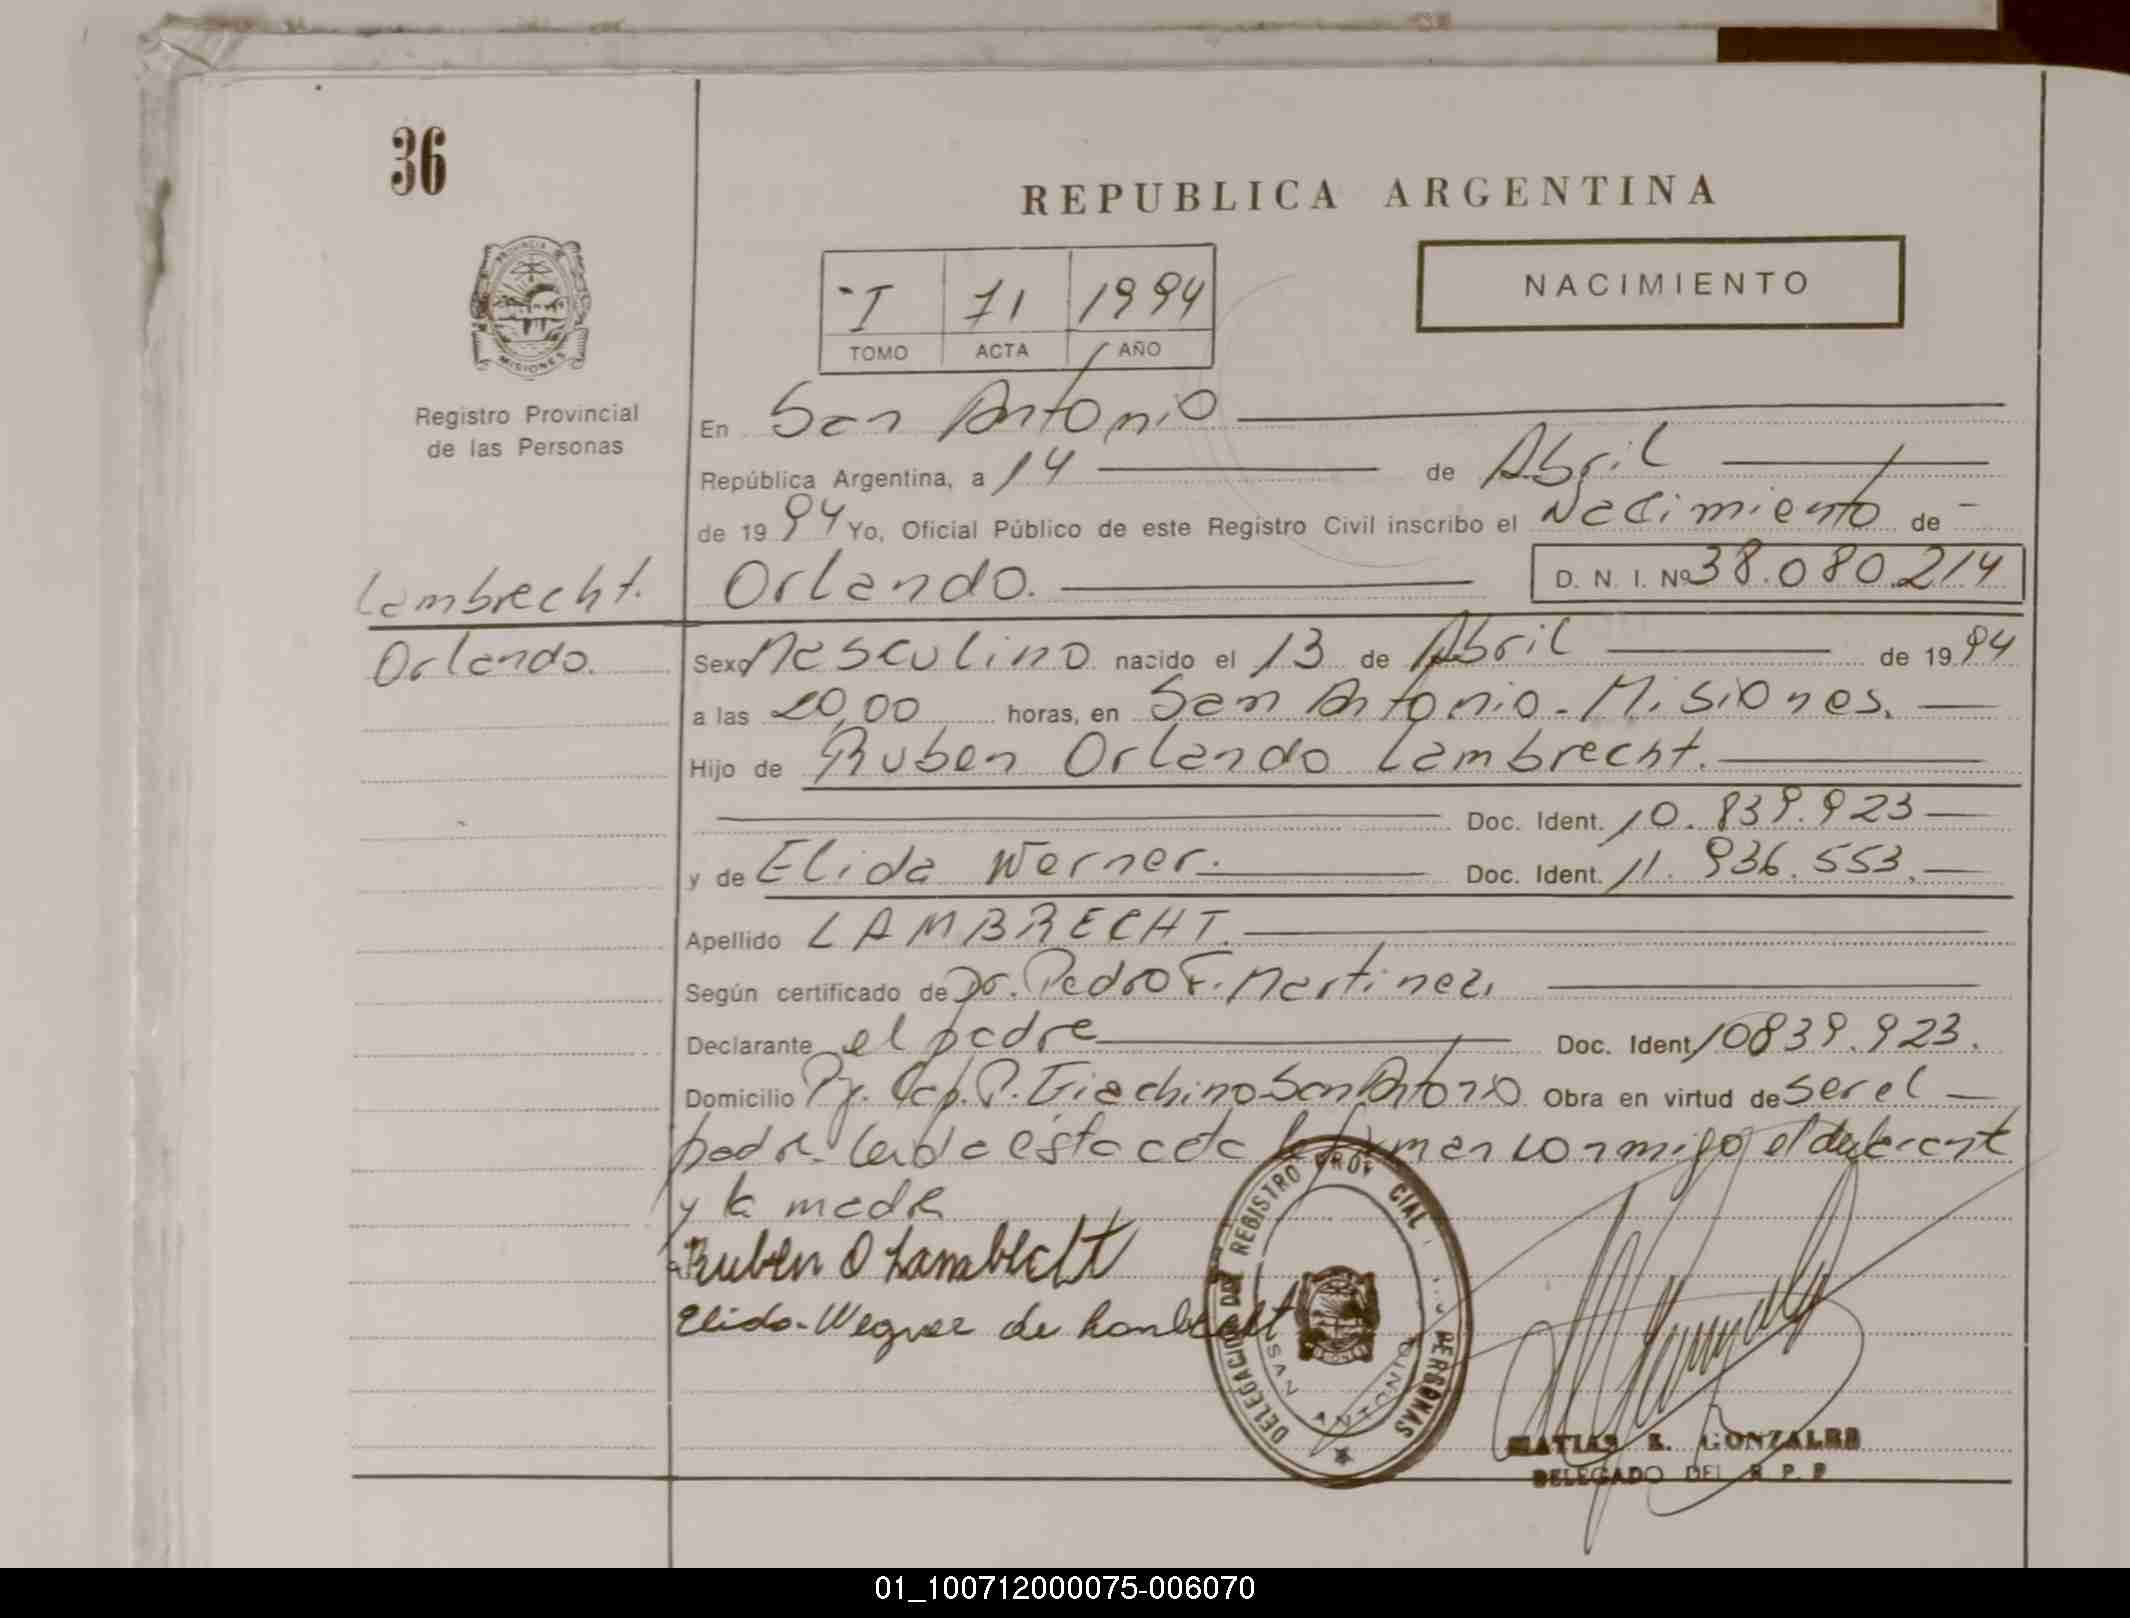 36
REPUBLICA ARGENTINA
PROVINCIA DE
MISIONES
Registro Provincial
de las Personas
NACIMIENTO
I 71 1994
TOMO ACTA AÑO
En San Antonio
República Argentina, a 14 de Abril
de 1994 Yo, Oficial Público de este Registro Civil inscribo el Nacimiento de
Lambrecht. Orlando. D. N. I. Nº 38.080.214
Orlando. Sexo Masculino nacido el 13 de Abril de 1994
a las 20,00 horas, en San Antonio - Misiones.
Hijo de Ruben Orlando Lambrecht.
Doc. Ident. 10.839.923
y de Elida Werner. Doc. Ident. 11.936.553.
Apellido LAMBRECHT.
Según certificado de Dr. Pedro F. Martinez,
Declarante el padre Doc. Ident 10839.923.
Domicilio Pj. Cap. P. Giachino San Antonio Obra en virtud de ser el
padre. Leida esta acta la firman conmigo el declarante
y la madre
Ruben O Lambrecht
Elida Wegner de Lambrecht
DELEGACION DEL REGISTRO PROVINCIAL PERSONAS
SAN ANTONIO
MATIAS R. GONZALEZ
DELEGADO DEL R. P. P
01_100712000075-006070